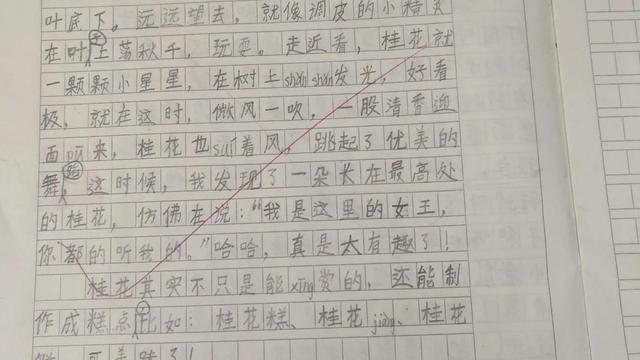 叶底下。远远望去，就像调皮的小精灵
在叶子上荡秋千，玩耍。走近看，桂花就
一颗颗小星星，在树上shǎn shǎn发光，好看
极，就在这时，微风一吹，一股清香迎
面而来，桂花也suí着风，跳起了优美的
舞蹈，这时候，我发现了一朵长在最高处
的桂花，仿佛在说："我是这里的女王，
你都的听我的。"哈哈，真是太有趣了！
桂花其实不只是能xīng赏的，还能制
作成糕点，比如：桂花糕、桂花jiàng、桂花
可美味了！